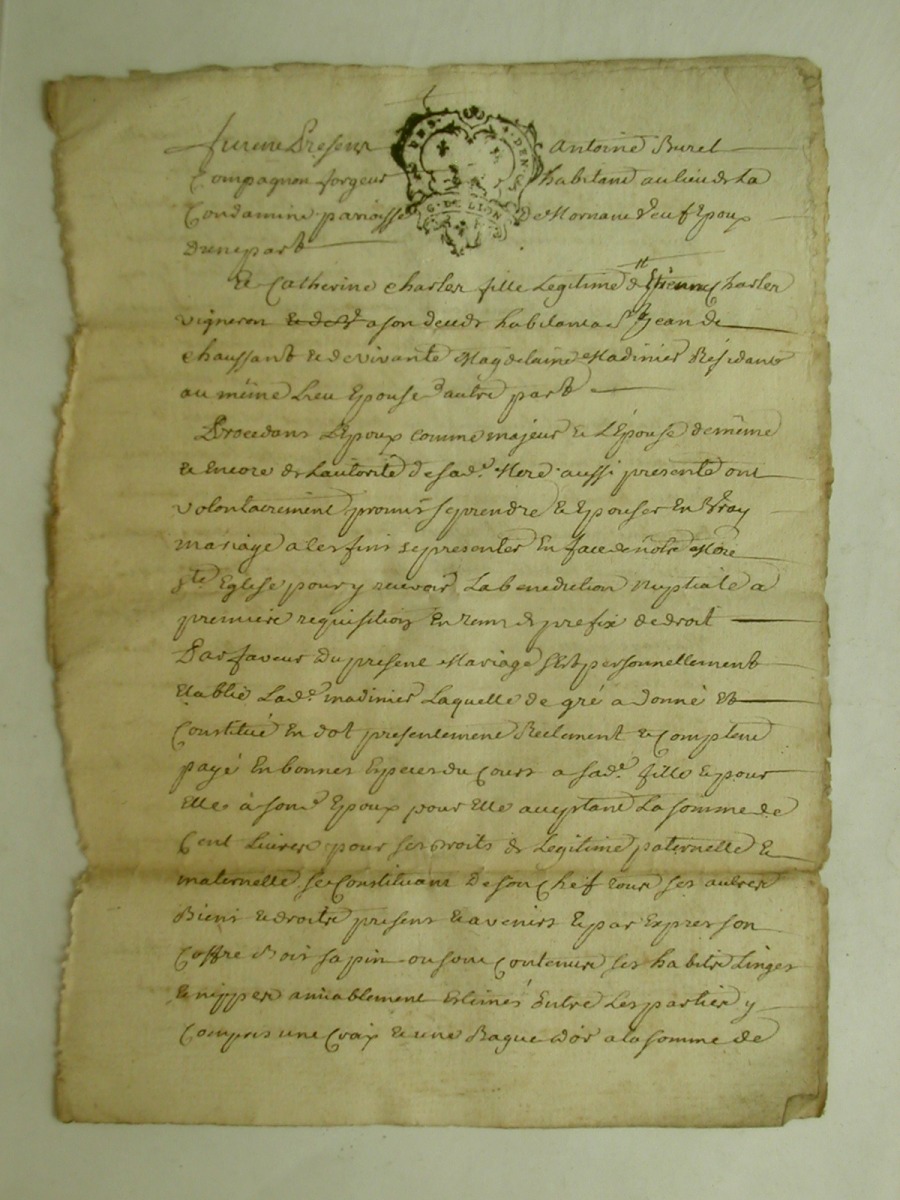 furent Presens Antoine Burel
Compagnon forgeur habitant au lieu de La
Condamine paroisse de Mornant veuf Epoux
DES DEN
G. DE LION
d'une part
Et Catherine charler fille Legitime d'Etienne Charler
vigneron a son decedr habitant a St Jean de
chaussant et de vivante Magdelaine Madinier Residant
au même Lieu Epouse d'autre part
Procedans L'Epoux comme majeur et L'Epouse de même
et Encore de Lautorité de sade Mere aussi presente ont
volontairement promis se prendre et Epouser En vray
mariage a les fins se presenter En face de nôtre Mere
Ste Eglise pour y recevoir La benediction Nuptiale a
premiere requisition En tems de prefix de droit
Par faveur du present Mariage s'est personnellement
Etablie Lade madinier Laquelle de gré a donné et
Constitué En dot presentement Reelement et Comptant
payé En bonnes Especes du Cours a sade fille et pour
Elle à sond Epoux pour Elle acceptant La somme de
Cent Livres pour ses droits de Legitime paternelle et
maternelle se Constituant de son Chef tous ses autres
Biens et droits presens et avenirs et par Exprer son
Coffre Bois sapin ou sont Contenus ses habits Linges
et nipper amiablement Estimés Entre Les parties y
Compris une Croix et une Bague d'or a la somme de